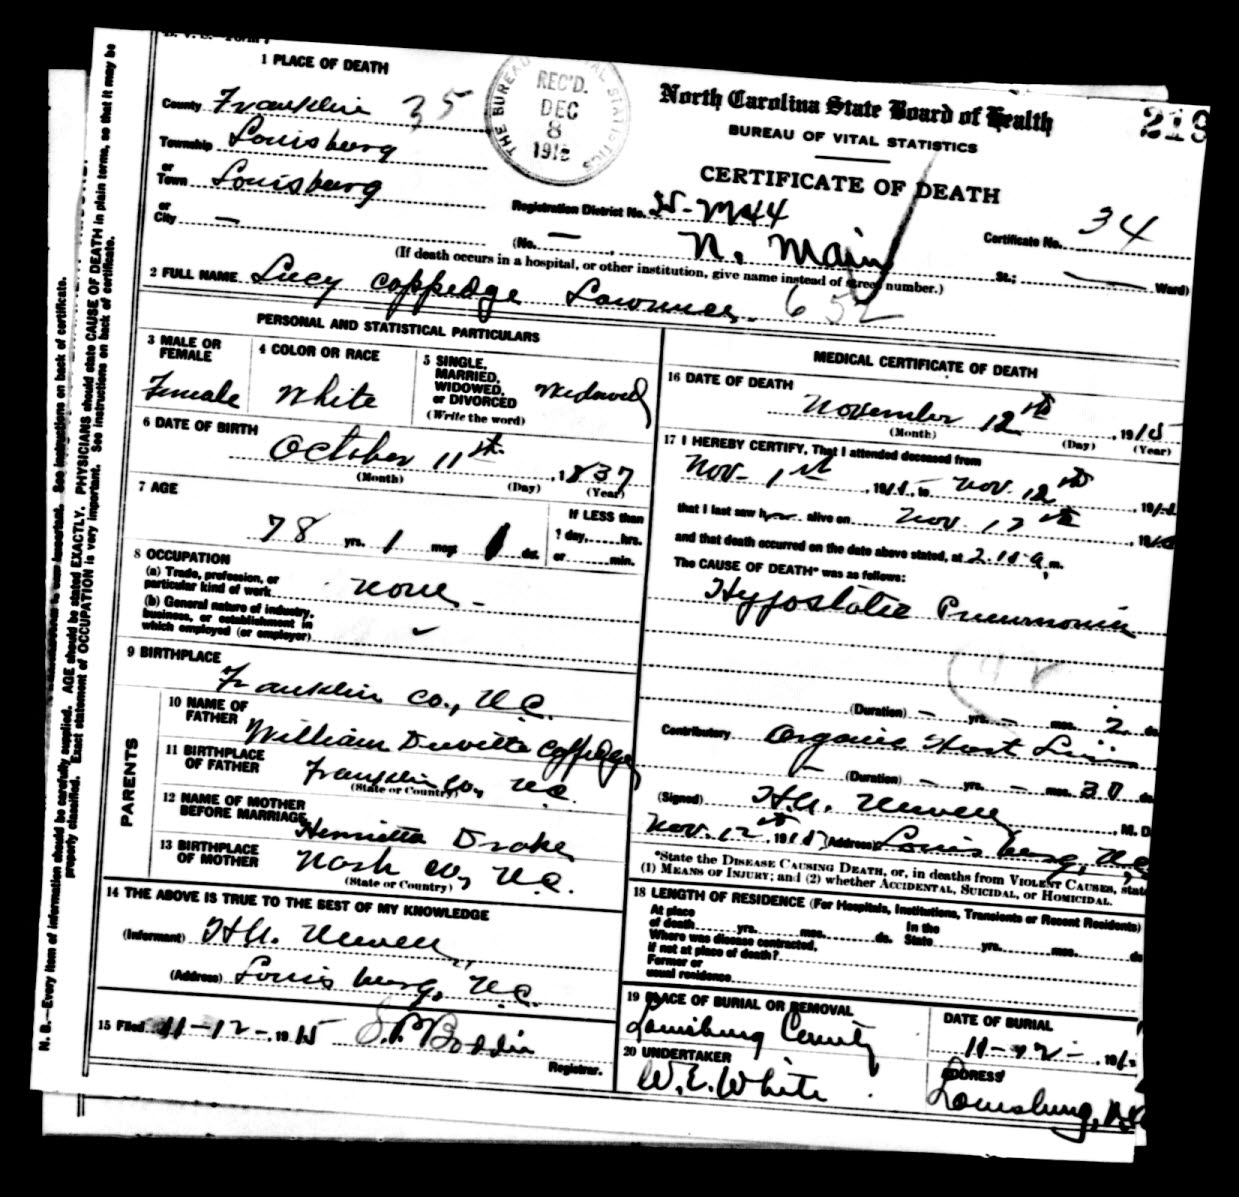 1 PLACE OF DEATH
County Franklin 35
Township Louisburg
or
Town Louisburg
or
City —
THE BUREAU VITAL STATISTICS
REC'D.
DEC
8
191
North Carolina State Board of Health
BUREAU OF VITAL STATISTICS
CERTIFICATE OF DEATH
219
Registration District No. 35-
Certificate No. 34
(No. — , N. Main St.; — Ward)
(If death occurs in a hospital, or other institution, give name instead of street number.)
2 FULL NAME Lucy Coppedge 652
PERSONAL AND STATISTICAL PARTICULARS
3 MALE OR FEMALE
Female
4 COLOR OR RACE
White
5 SINGLE, MARRIED, WIDOWED, or DIVORCED
(Write the word)
Widowed
6 DATE OF BIRTH
October 11th , 1837
(Month) (Day) (Year)
7 AGE
78 yrs. 1 mos. 1 ds.
If LESS than
1 day, hrs.
or min.
8 OCCUPATION
(a) Trade, profession, or
particular kind of work none -
(b) General nature of industry,
business, or establishment in
which employed (or employer)
9 BIRTHPLACE
Franklin Co., N.C.
PARENTS
10 NAME OF FATHER
William Coppedge
11 BIRTHPLACE OF FATHER
(State or Country)
Franklin Co., N.C.
12 NAME OF MOTHER BEFORE MARRIAGE
Henrietta Drake
13 BIRTHPLACE OF MOTHER
(State or Country)
Nash Co., N.C.
14 THE ABOVE IS TRUE TO THE BEST OF MY KNOWLEDGE
(Informant) H.A. Newell
(Address) Louisburg, N.C.
15 Filed 11-12-, 1915 S.P. Boddie
Registrar.
MEDICAL CERTIFICATE OF DEATH
16 DATE OF DEATH
November 12th , 1915
(Month) (Day) (Year)
17 I HEREBY CERTIFY, That I attended deceased from
Nov. 1st , 191 , to Nov. 12th , 191
that I last saw her alive on Nov 12th , 191
and that death occurred on the date above stated, at 2. a m.
The CAUSE OF DEATH* was as follows:
Hypostatic Pneumonia
(Duration) — yrs. — mos. 2 ds.
Contributory Organic Heart
(Duration) — yrs. — mos. 30 ds.
(Signed) H.A. Newell , M. D.
Nov. 12th , 1915 (Address) Louisburg, N.C.
*State the DISEASE CAUSING DEATH, or, in deaths from VIOLENT CAUSES, state
(1) MEANS OF INJURY; and (2) whether ACCIDENTAL, SUICIDAL, or HOMICIDAL.
18 LENGTH OF RESIDENCE (For Hospitals, Institutions, Transients or Recent Residents)
At place In the
of death yrs. mos. ds. State yrs. mos. ds
Where was disease contracted,
if not at place of death?
Former or
usual residence
19 PLACE OF BURIAL OR REMOVAL
Louisburg
DATE OF BURIAL
11-12-, 191
20 UNDERTAKER
W.E. White
ADDRESS
Louisburg, N.C.
N. B.—Every item of information should be carefully supplied. AGE should be stated EXACTLY. PHYSICIANS should state CAUSE OF DEATH in plain terms, so that it may be
properly classified. Exact statement of OCCUPATION is very important. See instructions on back of certificate.